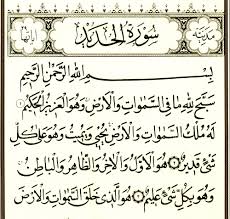 مدنية سُورَةُ الْحَدِيدِ
بِسْمِ اللهِ الرَّحْمٰنِ الرَّحِيمِ
سَبَّحَ لِلّٰهِ مَا فِي السَّمٰوَاتِ وَالْاَرْضِ وَهُوَ الْعَزِيزُ الْحَكِيمُ
لَهُ مُلْكُ السَّمٰوَاتِ وَالْاَرْضِ يُحْيِي وَيُمِيتُ وَهُوَ عَلٰى كُلِّ
شَيْءٍ قَدِيرٌ هُوَ الْاَوَّلُ وَالْاٰخِرُ وَالظَّاهِرُ وَالْبَاطِنُ
وَهُوَ بِكُلِّ شَيْءٍ عَلِيمٌ هُوَ الَّذِي خَلَقَ السَّمٰوَاتِ وَالْاَرْضَ